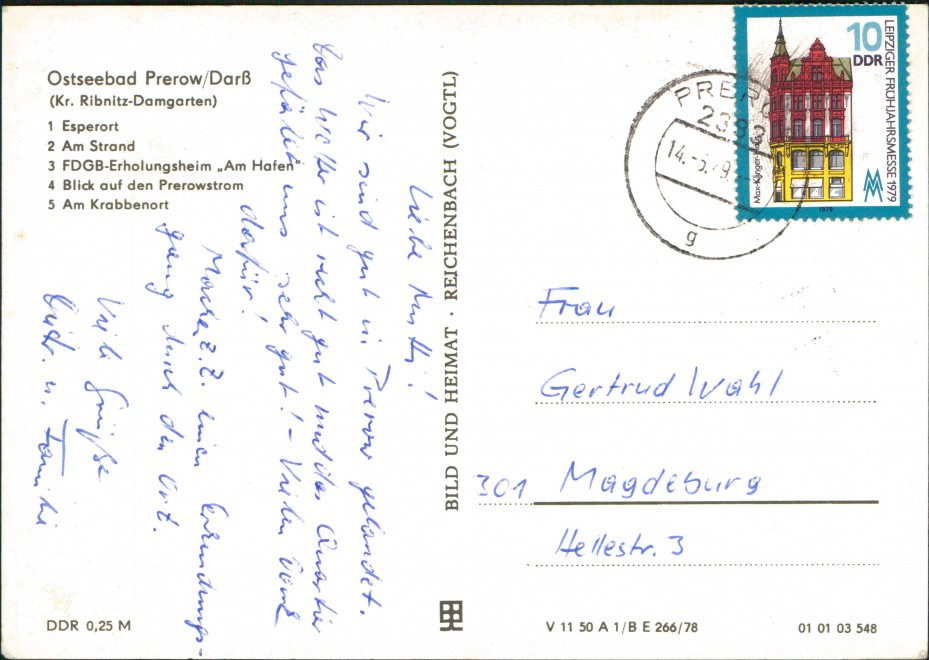 Ostseebad Prerow/Darß
(Kr. Ribnitz-Damgarten)
1 Esperort
2 Am Strand
3 FDGB-Erholungsheim „Am Hafen"
4 Blick auf den Prerowstrom
5 Am Krabbenort
Liebe Mutti!
Wir sind gut in Prerow gelandet.
Das Wetter ist recht gut und das Quartier
gefällt uns sehr gut! - Vielen Dank
dafür!
Mache z.Z. einen Erkundungs-
gang durch den Ort.
Viele Grüße
u. Familie
DDR 0,25 M
BILD UND HEIMAT · REICHENBACH (VOGTL)
10
DDR
LEIPZIGER FRÜHJAHRSMESSE 1979
1979
PREROW
g
Frau
Gertrud Wahl
301 Magdeburg
Hellestr. 3
V 11 50 A 1/B E 266/78
01 01 03 548